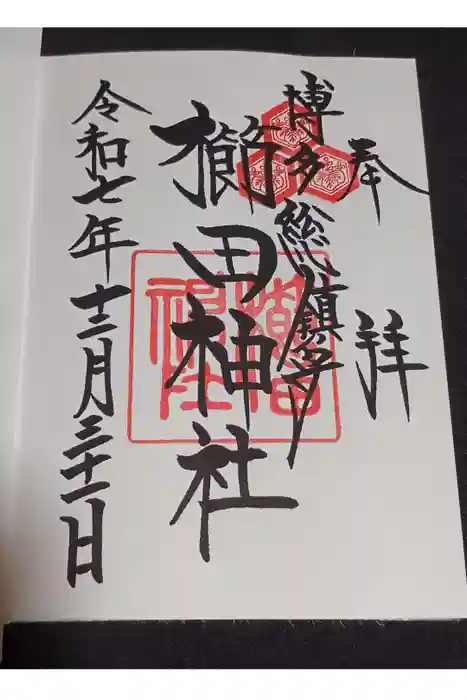 奉拝
博多総鎮守
櫛田神社
令和七年十二月三十一日
櫛田神社